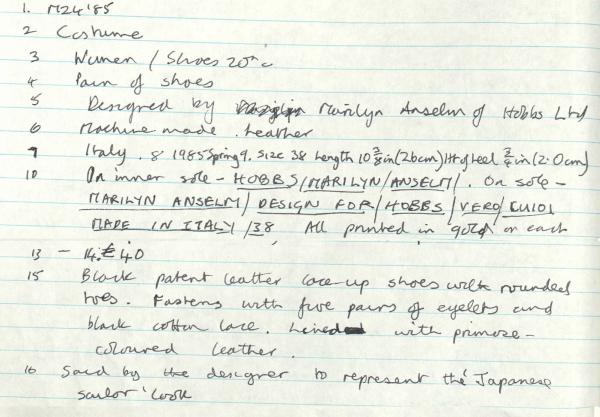 1. M24 '85
2 Costume
3 Women / Shoes 20th c
4 Pair of shoes
5 Designed by Marilyn Anselm of Hobbs Ltd
6 Machine made. Leather
7 Italy. 8 1985 Spring 9. Size 38 Length 10 3/8 in (26cm) Ht of heel 3/4 in (2.0cm)
10 On inner sole - HOBBS/MARILYN/ANSELM/. On sole -
MARILYN ANSELM/ DESIGN FOR/HOBBS/VERO/CUOIO
MADE IN ITALY /38 All printed in gold on each
13 - 14. £40
15 Black patent leather lace-up shoes with rounded
toes. Fastens with five pairs of eyelets and
black cotton lace. Lined with primrose-
coloured leather.
16 Said by the designer to represent the 'Japanese
sailor' look